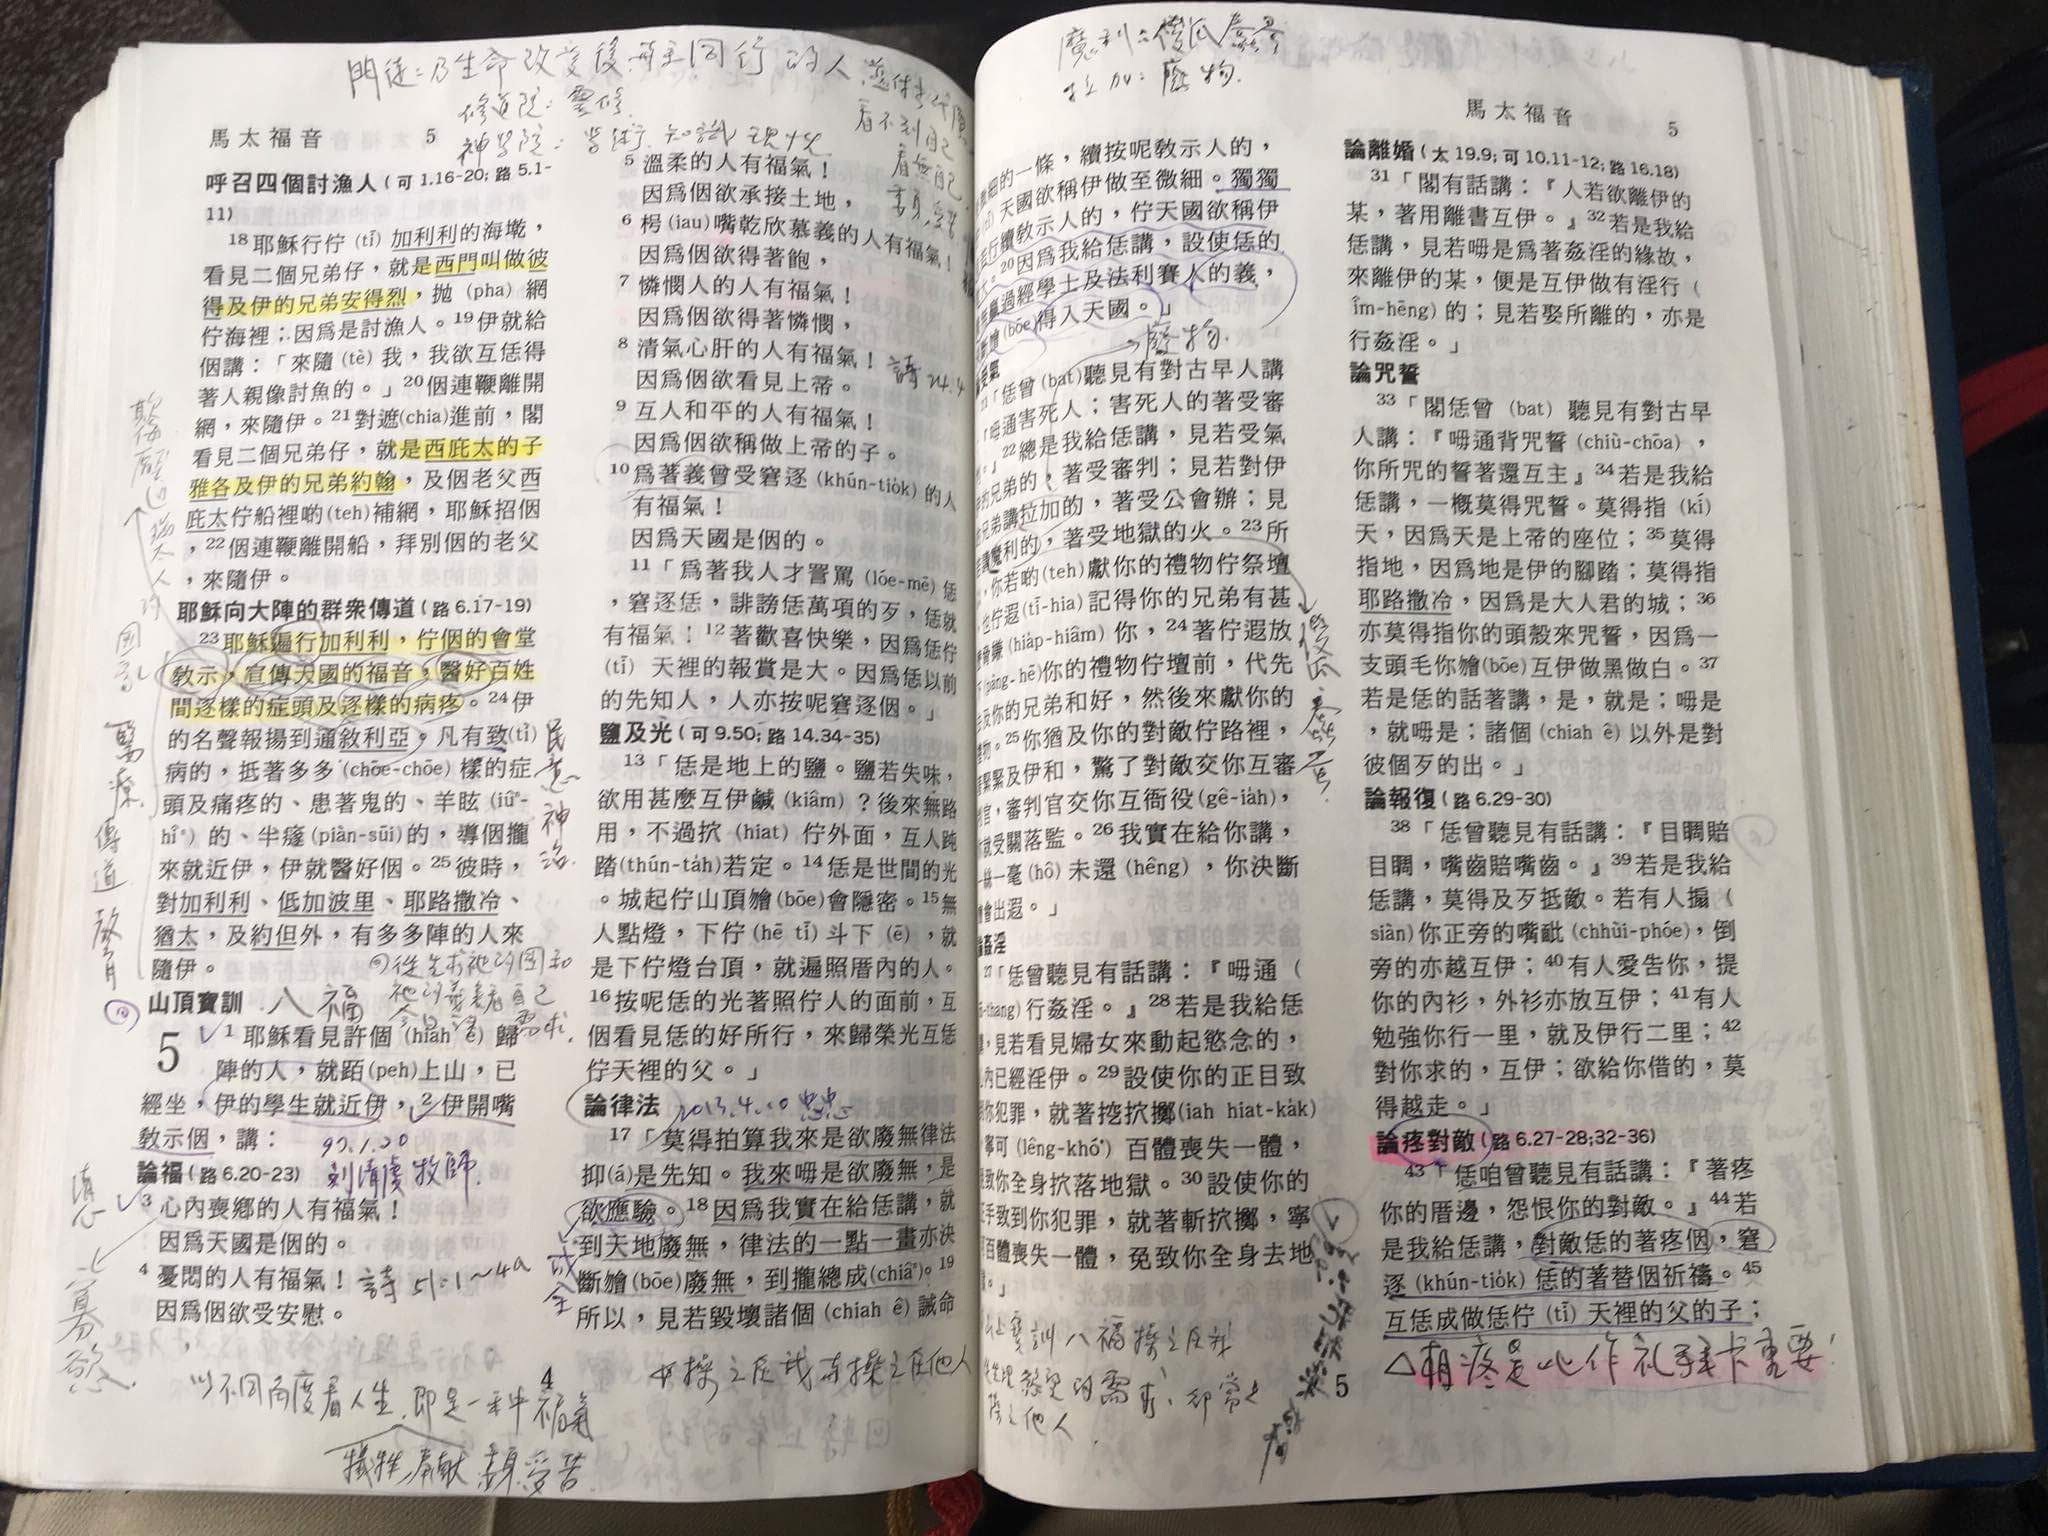 門徒:乃生命改變後,與主同行的人
修道院:靈修
神學院:學術.知識
看不到自己
馬太福音 5
呼召四個討漁人(可 1.16-20; 路 5.1-
11)
18耶穌行佇(tī)加利利的海墘,
看見二個兄弟仔,就是西門叫做彼
得及伊的兄弟安得烈,抛(pha)網
佇海裡;因爲是討漁人。19伊就給
個講:「來隨(tè)我,我欲互恁得
著人親像討魚的。」20個連鞭離開
網,來隨伊。21對遮(chia)進前,閣
看見二個兄弟仔,就是西庇太的子
雅各及伊的兄弟約翰,及個老父西
庇太佇船裡啲(teh)補網,耶穌招個
,22個連鞭離開船,拜別個的老父
,來隨伊。
耶穌向大陣的群衆傳道(路 6.17-19)
23耶穌遍行加利利,佇個的會堂
教示,宣傳天國的福音,醫好百姓
間逐樣的症頭及逐樣的病疼。24伊
的名聲報揚到通敘利亞。凡有致(tī)
病的,抵著多多(chōe-chōe)樣的症
頭及痛疼的、患著鬼的、羊眩(iûⁿ-
hîⁿ)的、半癱(piàn-sūi)的,導個攏
來就近伊,伊就醫好個。25彼時,
對加利利、低加波里、耶路撒冷、
猶太,及約但外,有多多陣的人來
隨伊。
醫療 傳道 教育
山頂寶訓 八福
5 1耶穌看見許個(hiah ê)歸
陣的人,就跖(peh)上山,已
經坐,伊的學生就近伊,2伊開嘴
教示個,講:
97.1.20
牧師
論福(路 6.20-23)
3心內喪鄉的人有福氣!
因爲天國是個的。
4憂悶的人有福氣!詩51:1~4a
因爲個欲受安慰。
5溫柔的人有福氣!
因爲個欲承接土地,
6枵(iau)嘴乾欣慕義的人有福氣!
因爲個欲得著飽,
7憐憫人的人有福氣!
因爲個欲得著憐憫,
8清氣心肝的人有福氣!詩24.4
因爲個欲看見上帝。
9互人和平的人有福氣!
因爲個欲稱做上帝的子。
10爲著義曾受窘逐(khún-tio̍k)的人
有福氣!
因爲天國是個的。
11「爲著我人才詈罵(lóe-mē)恁
,窘逐恁,誹謗恁萬項的歹,恁就
有福氣!12著歡喜快樂,因爲恁佇
(tī)天裡的報賞是大。因爲恁以前
的先知人,人亦按呢窘逐個。」
鹽及光(可 9.50; 路 14.34-35)
13「恁是地上的鹽。鹽若失味,
欲用甚麼互伊鹹(kiâm)?後來無路
用,不過㧒(hiat)佇外面,互人踐
踏(thún-ta̍h)若定。14恁是世間的光
。城起佇山頂獪(bōe)會隱密。15無
人點燈,下佇(hē tī)斗下(ē),就
是下佇燈台頂,就遍照厝內的人。
16按呢恁的光著照佇人的面前,互
個看見恁的好所行,來歸榮光互恁
佇天裡的父。」
論律法 2013.4.10
17「莫得拍算我來是欲廢無律法
抑(á)是先知。我來呣是欲廢無,是
欲應驗。18因爲我實在給恁講,就
到天地廢無,律法的一點一畫亦決
斷獪(bōe)廢無,到攏總成(chiâⁿ)。19
所以,見若毀壞諸個(chiah ê)誡命
成全
4
以不同角度看人生.即是一種福氣
犧牲 奉獻 受苦
魔利:傻瓜
拉加:廢物.
馬太福音 5
細的一條,續按呢教示人的,
天國欲稱伊做至微細。獨獨
行續教示人的,佇天國欲稱伊
20因爲我給恁講,設使恁的
贏過經學士及法利賽人的義,
獪(bōe)得入天國。」
廢物.
「恁曾(bat)聽見有對古早人講
呣通害死人;害死人的著受審
。』22總是我給恁講,見若受氣
的兄弟的,著受審判;見若對伊
兄弟講拉加的,著受公會辦;見
講魔利的,著受地獄的火。23所
,你若啲(teh)獻你的禮物佇祭壇
也佇遐(tī-hia)記得你的兄弟有甚
脅嫌(hia̍p-hiâm)你,24著佇遐放
(pàng-hē)你的禮物佇壇前,代先
及你的兄弟和好,然後來獻你的
禮物。25你猶及你的對敵佇路裡,
緊緊及伊和,驚了對敵交你互審
官,審判官交你互衙役(gê-ia̍h),
就受關落監。26我實在給你講,
一絲一毫(hô)未還(hêng),你決斷
會出遐。」
論姦淫
27「恁曾聽見有話講:『呣通(
-thang)行姦淫。』28若是我給恁
講,見若看見婦女來動起慾念的,
內已經淫伊。29設使你的正目致
你犯罪,就著挖㧒擲(iah hiat-ka̍k)
寧可(lêng-khó)百體喪失一體,
致你全身㧒落地獄。30設使你的
正手致到你犯罪,就著斬㧒擲,寧
百體喪失一體,免致你全身去地
。」
論離婚(太 19.9; 可 10.11-12; 路 16.18)
31「閣有話講:『人若欲離伊的
某,著用離書互伊。』32若是我給
恁講,見若呣是爲著姦淫的緣故,
來離伊的某,便是互伊做有淫行(
îm-hēng)的;見若娶所離的,亦是
行姦淫。」
論咒誓
33「閣恁曾(bat)聽見有對古早
人講:『呣通背咒誓(chiù-chōa),
你所咒的誓著還互主』34若是我給
恁講,一概莫得咒誓。莫得指(kí)
天,因爲天是上帝的座位;35莫得
指地,因爲地是伊的腳踏;莫得指
耶路撒冷,因爲是大人君的城;36
亦莫得指你的頭殼來咒誓,因爲一
支頭毛你獪(bōe)互伊做黑做白。37
若是恁的話著講,是,就是;呣是
,就呣是;諸個(chiah ê)以外是對
彼個歹的出。」
論報復(路 6.29-30)
38「恁曾聽見有話講:『目睭賠
目睭,嘴齒賠嘴齒。』39若是我給
恁講,莫得及歹抵敵。若有人搧(
siàn)你正旁的嘴䫌(chhùi-phóe),倒
旁的亦越互伊;40有人愛告你,提
你的內衫,外衫亦放互伊;41有人
勉強你行一里,就及伊行二里;42
對你求的,互伊;欲給你借的,莫
得越走。」
論疼對敵(路 6.27-28;32-36)
43「恁咱曾聽見有話講:『著疼
你的厝邊,怨恨你的對敵。』44若
是我給恁講,對敵恁的著疼個,窘
逐(khún-tio̍k)恁的著替個祈禱。45
互恁成做恁佇(tī)天裡的父的子;
5